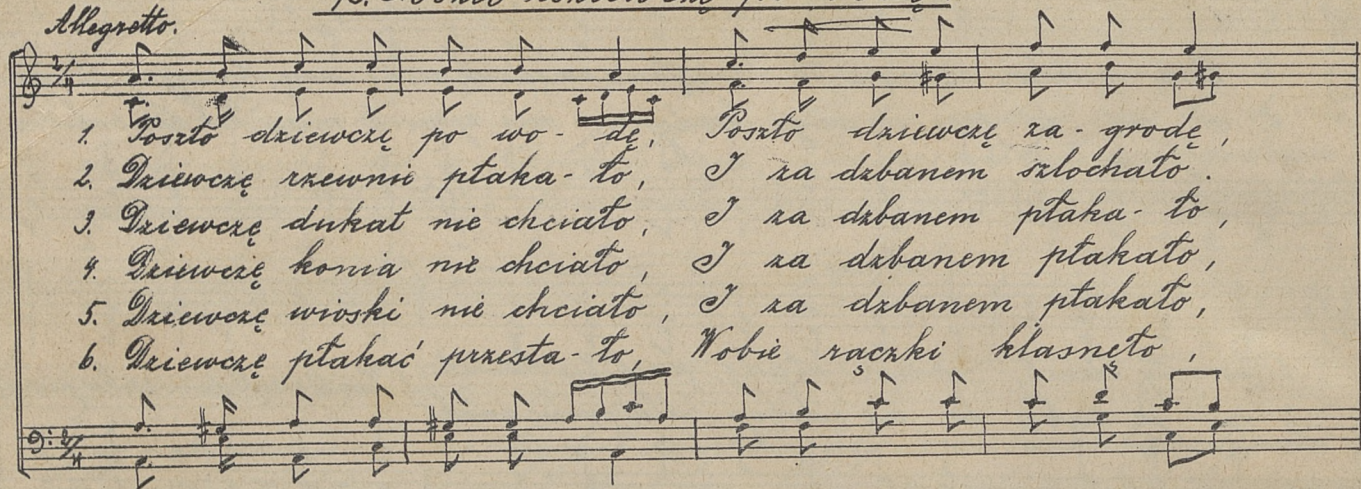 Allegretto.
1. Poszło dziewczę po wo - dę, Poszło dziewczę za - grodę,
2. Dziewczę rzewnie płaka - ło, I za dzbanem szlochało.
3. Dziewczę dukat nie chciało, I za dzbanem płaka - ło,
4. Dziewczę konia nie chciało, I za dzbanem płakało,
5. Dziewczę wioski nie chciało, I za dzbanem płakało,
6. Dziewczę płakać przesta - ło, Wobie rączki klasnęło,